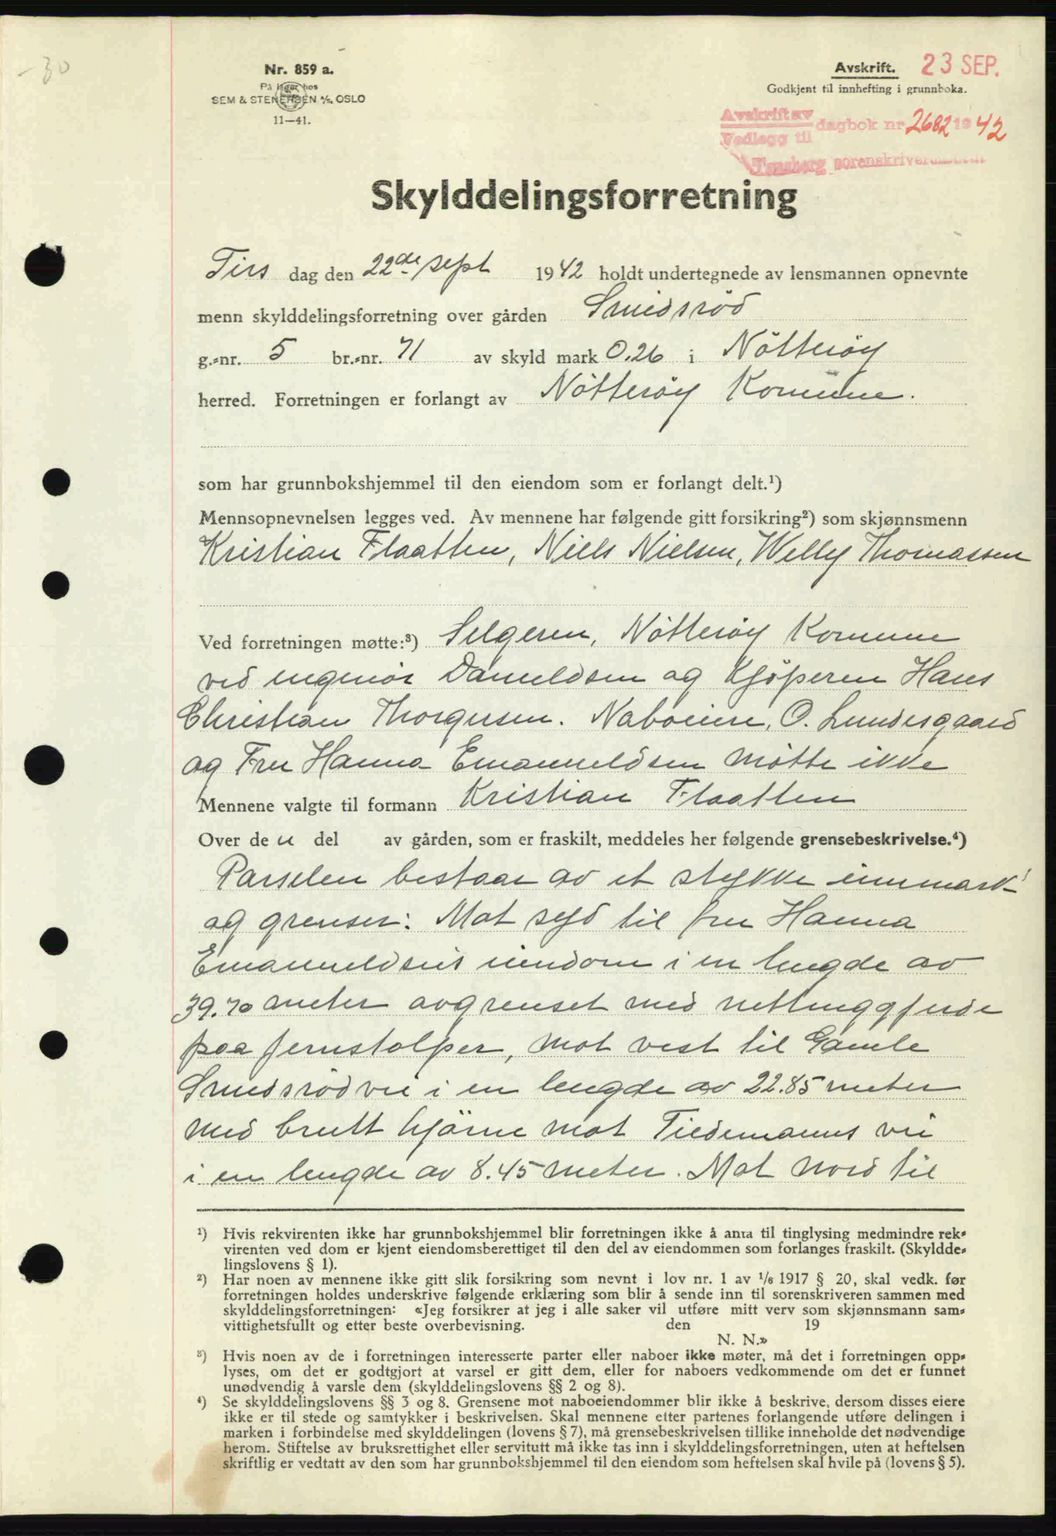 -30
Nr. 859 a.
På lager hos
SEM & STENERSEN A/S, OSLO
11—41.
Avskrift. 23 SEP.
Godkjent til innhefting i grunnboka.
Avskrift av
Vedlegg til dagbok nr 2682 1942
Tønsberg sorenskriverembete
Skylddelingsforretning
Tirs dag den 22de sept 1942 holdt undertegnede av lensmannen opnevnte
menn skylddelingsforretning over gården Smidsröd
g.-nr. 5 br.-nr. 71 av skyld mark 0.26 i Nötteröy
herred. Forretningen er forlangt av Nötteröy Komune.
som har grunnbokshjemmel til den eiendom som er forlangt delt.¹)
Mennsopnevnelsen legges ved. Av mennene har følgende gitt forsikring²) som skjønnsmenn
Kristian Flaatten, Niels Nielsen, Welly Thomassen
Ved forretningen møtte:³) Selgeren, Nötteröy Komune
ved ingeniör Danieldsen og Kjöperen Hans
Christian Thorgersen. Naboeiere, O. Lundesgaard
og Fru Hanna Emanueldsen mötte ikke
Mennene valgte til formann Kristian Flaatten
Over de n del av gården, som er fraskilt, meddeles her følgende grensebeskrivelse.⁴)
Parselen bestaar av et stykke innmark
og grenser: Mot syd til fru Hanna
Emanueldsens eiendom i en lengde av
39.70 meter avgrenset med nettinggjerde
paa jernstolper, mot vest til Gamle
Smidsrödvei i en lengde av 22.85 meter
med brutt hjörne mot Tiedemanns vei
i en lengde av 8.45 meter. Mot nord til
¹) Hvis rekvirenten ikke har grunnbokshjemmel blir forretningen ikke å anta til tinglysing medmindre rek-
virenten ved dom er kjent eiendomsberettiget til den del av eiendommen som forlanges fraskilt. (Skyldde-
lingslovens § 1).
²) Har noen av mennene ikke gitt slik forsikring som nevnt i lov nr. 1 av 1/6 1917 § 20, skal vedk. før
forretningen holdes underskrive følgende erklæring som blir å sende inn til sorenskriveren sammen med
skylddelingsforretningen: «Jeg forsikrer at jeg i alle saker vil utføre mitt verv som skjønnsmann sam-
vittighetsfullt og etter beste overbevisning. den 19
N. N.»
³) Hvis noen av de i forretningen interesserte parter eller naboer ikke møter, må det i forretningen opp-
lyses, om det er godtgjort at varsel er gitt dem, eller for naboers vedkommende om det er funnet
unødvendig å varsle dem (skylddelingslovens §§ 2 og 8).
⁴) Se skylddelingslovens §§ 3 og 8. Grensene mot naboeiendommer blir ikke å beskrive, dersom disses eiere
ikke er til stede og samtykker i beskrivelsen. Skal mennene etter partenes forlangende utføre delingen i
marken i forbindelse med skylddelingen (lovens § 7), må grensebeskrivelsen tillike inneholde det nødvendige
herom. Stiftelse av bruksrettighet eller servitutt må ikke tas inn i skylddelingsforretningen, uten at heftelsen
skriftlig er vedtatt av den som har grunnbokshjemmel til den eiendom som heftelsen skal hvile på (lovens § 5).